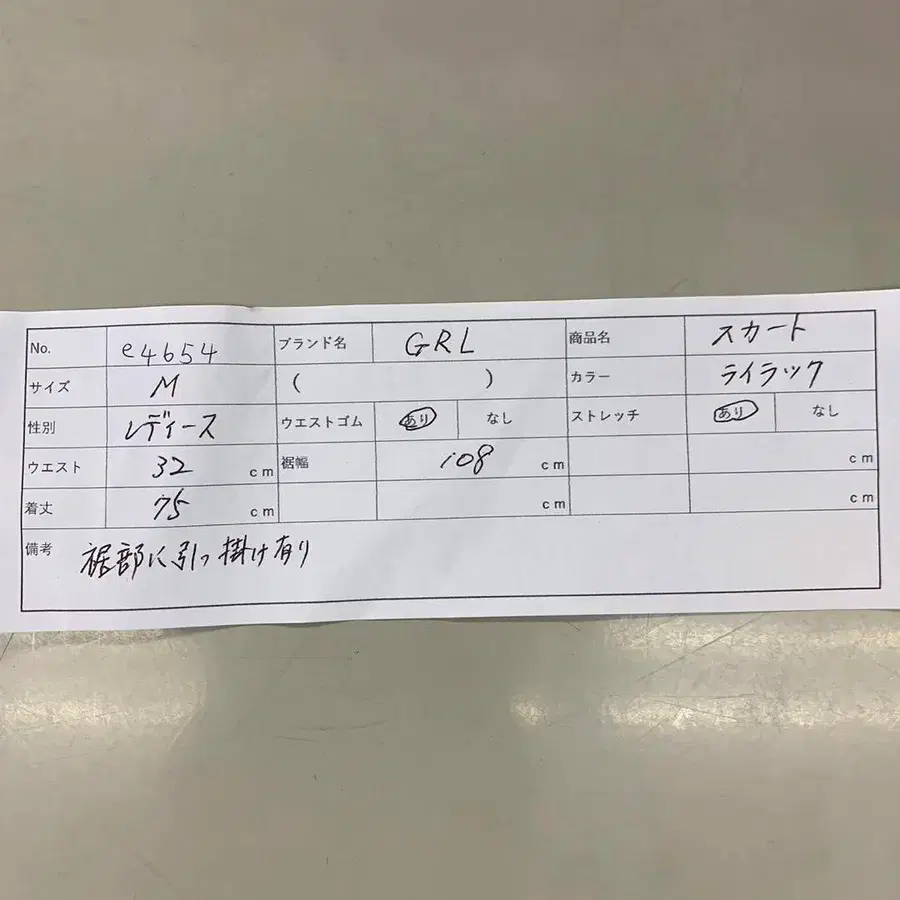 No. e4654 ブランド名 GRL 商品名 スカート
サイズ M ( ) カラー ライラック
性別 レディース ウエストゴム あり なし ストレッチ あり なし
ウエスト 32 cm 裾幅 108 cm cm
着丈 75 cm cm cm
備考 裾部に引っ掛け有り